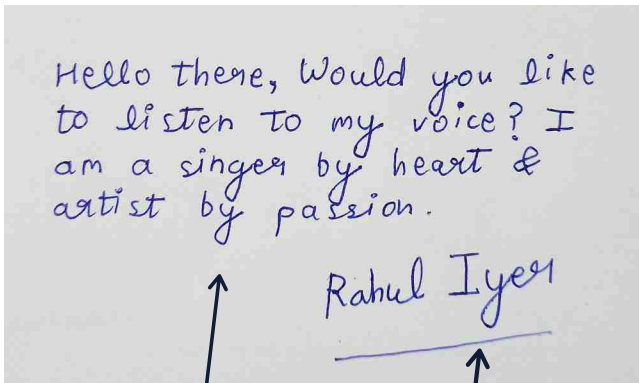 Hello there, Would you like
to listen to my voice? I
am a singer by heart &
artist by passion.
Rahul Iyer